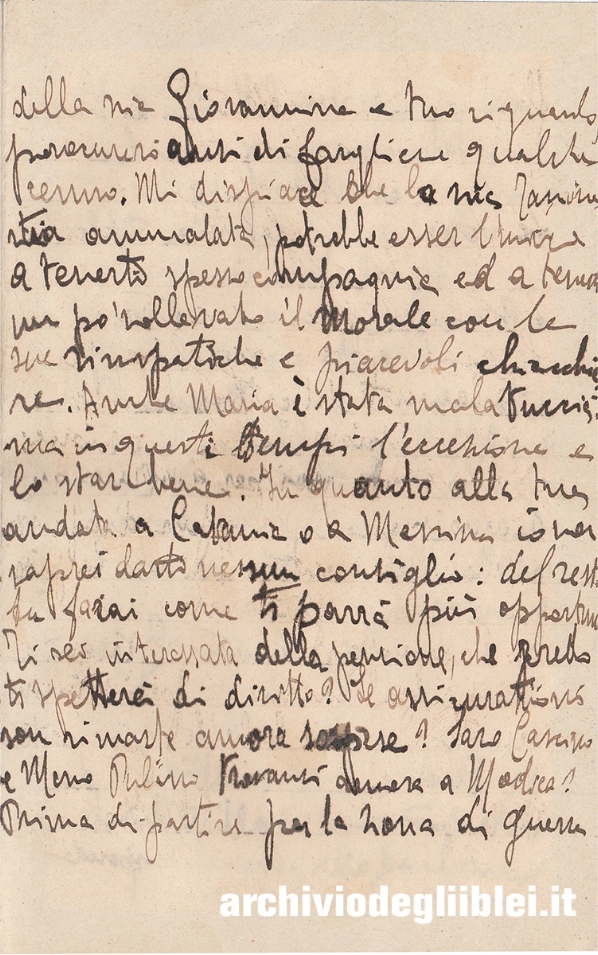 della mia Giovannina e tuo riguardo,
procurerò anzi di fargliene qualche
cenno. Mi dispiace che la mia
stia ammalata, potrebbe esser l'unica
a tenerti spesso compagnia ed a tenerti
un po' sollevato il morale con le
sue simpatiche e piacevoli chiacchie
re. Anche Maria è stata malatuccia,
ma in questi tempi l'eccezione e
lo star bene. In quanto alla tua
andata a Catania o a Messina io non
saprei darti nessun consiglio: del resto
tu farai come ti parrà più opportuno
Ti sei interessata della pensione, che credo
ti spetterei di diritto? Le assicurazioni
son rimaste ancora sospese? Saro Cascino
e Meno trovansi ancora a Modica?
Prima di partire per la zona di guerra
archiviodegliiblei.it